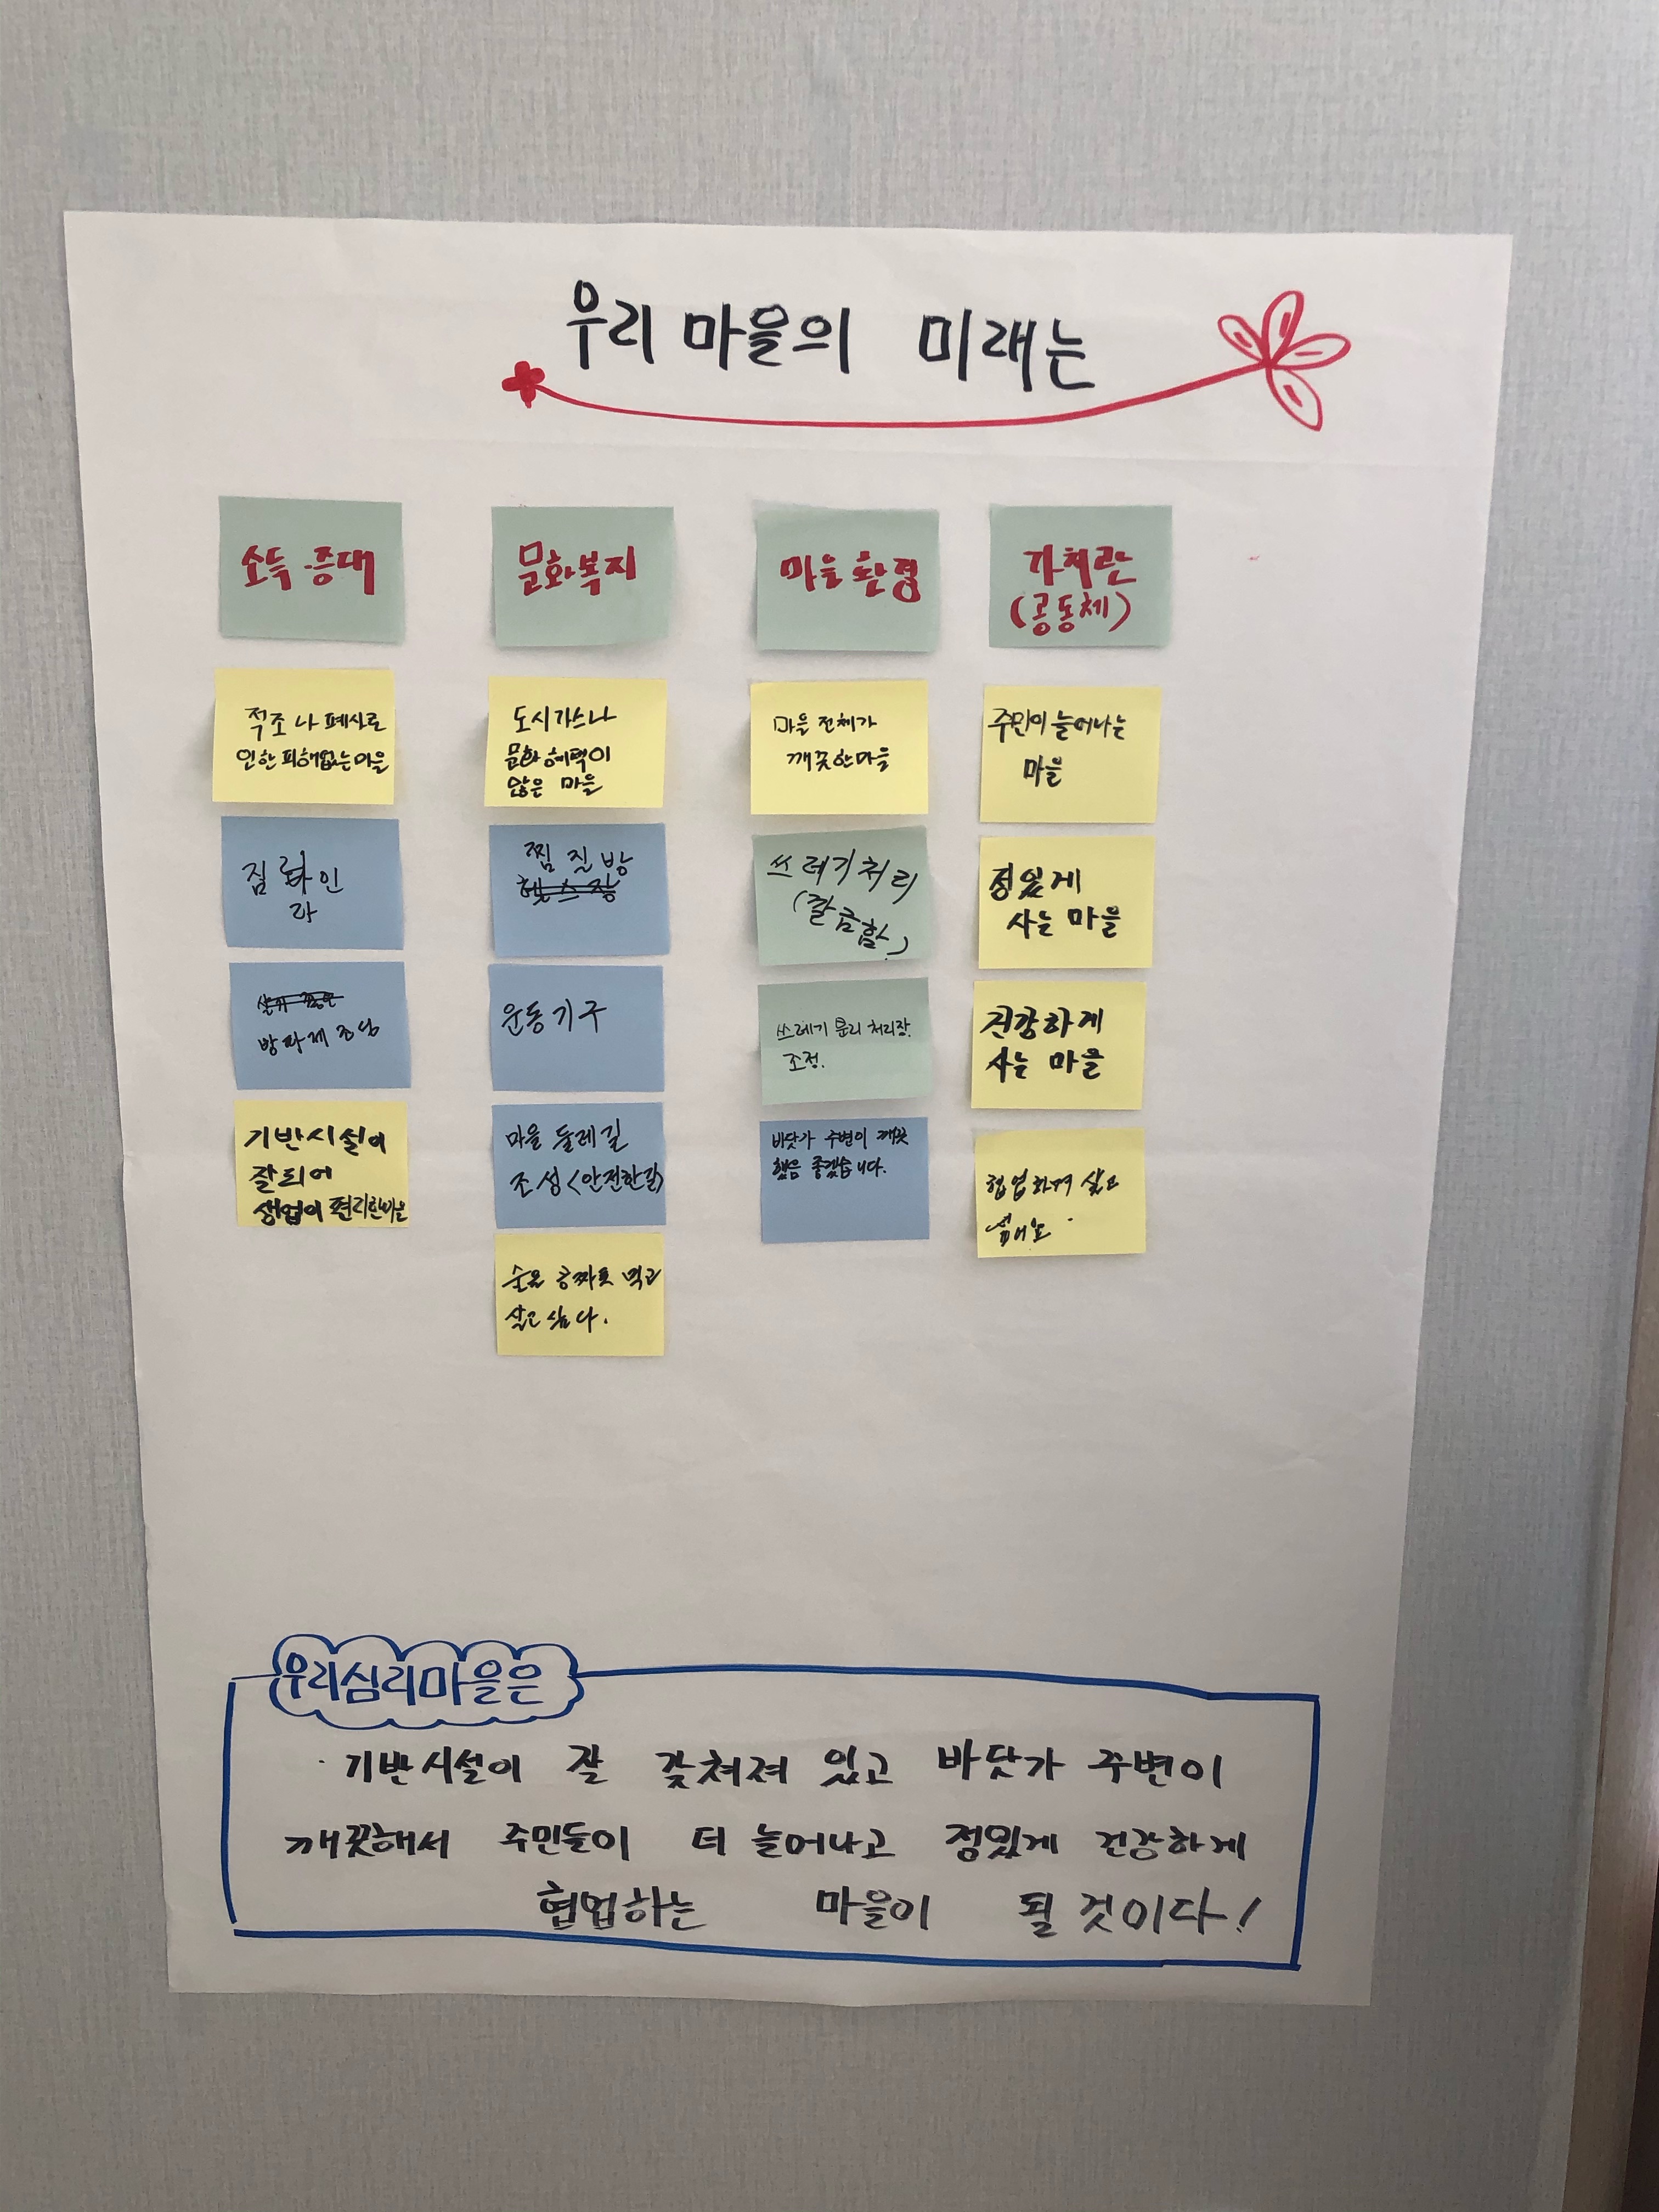 우리 마을의 미래는
소득증대
적조나 폐사로
인한 피해없는마을
짚 라인
라
방파제 조성
기반시설이
잘되어
생업이 편리한마을
문화복지
도시가스나
문화혜택이
많은 마을
찜질방
헬스장
운동기구
마을 둘레길
조성<안전한길>
술은 공짜로 먹고
살고 싶다.
마을환경
마을 전체가
깨끗한마을
쓰레기처리
(깔끔함)
쓰레기 분리 처리장.
조정.
바닷가 주변이 깨끗
했음 좋겠습니다.
가치관
(공동체)
주민이 늘어나는
마을
정있게
사는 마을
건강하게
사는 마을
협업하며 살고
싶어요
우리심리마을은
기반시설이 잘 갖쳐져 있고 바닷가 주변이
깨끗해서 주민들이 더 늘어나고 정있게 건강하게
협업하는 마을이 될 것이다!